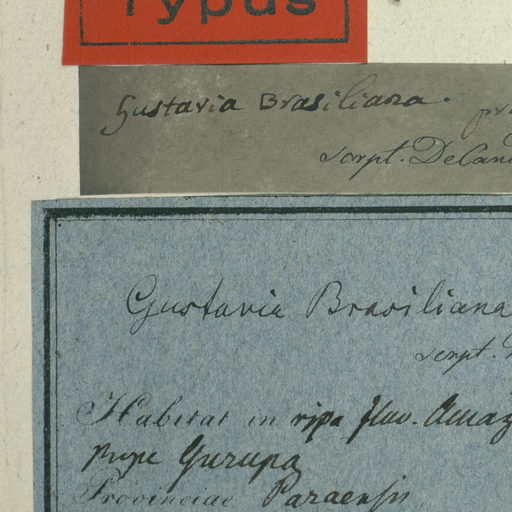 Typus
Gustavia Brasiliana.
script. DeCan
Gustavia Brasiliana
script.
Habitat in ripa fluv. Amaz
prope Gurupa
Provinciae Paraensis